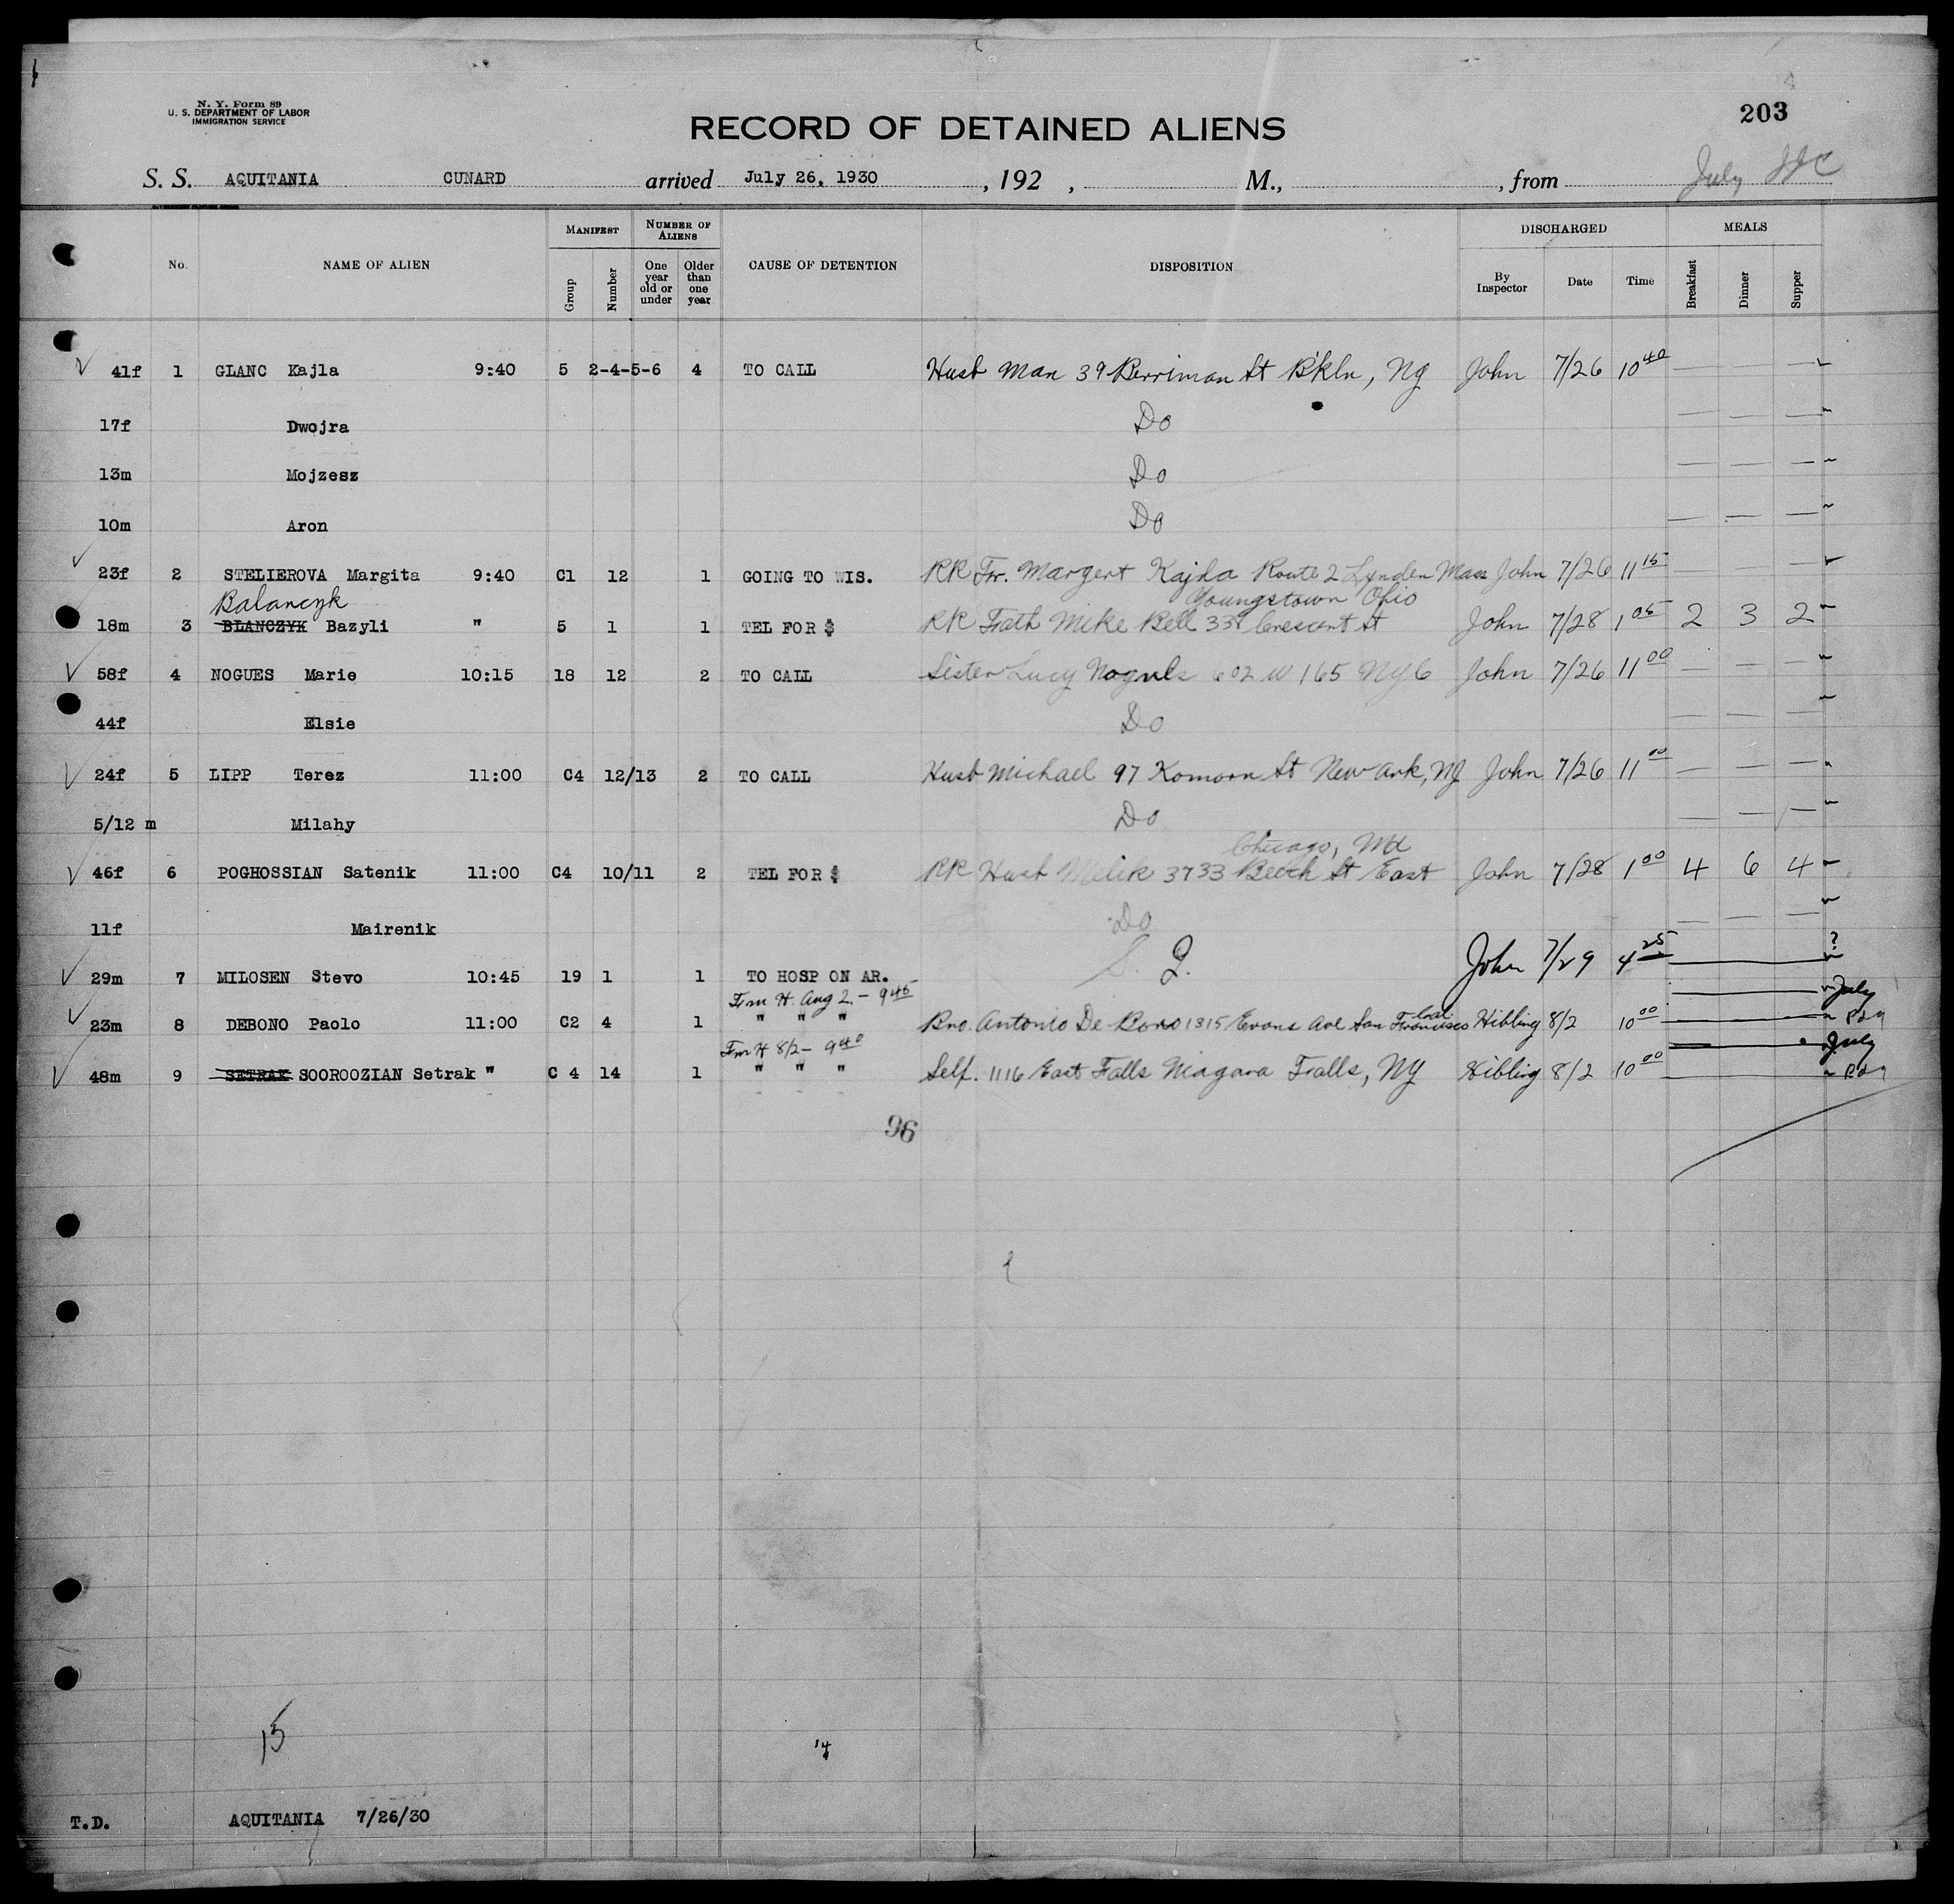 N. Y. Form 89
U. S. DEPARTMENT OF LABOR
IMMIGRATION SERVICE
203
RECORD OF DETAINED ALIENS
July
S. S. AQUITANIA CUNARD arrived July 26, 1930, 192 , M., , from
No. NAME OF ALIEN MANIFEST Group Number NUMBER OF ALIENS One year old or under Older than one year CAUSE OF DETENTION DISPOSITION DISCHARGED By Inspector Date Time MEALS Breakfast Dinner Supper
41f 1 GLANC Kajla 9:40 5 2-4-5-6 4 TO CALL Husb Man 39 Berriman St B'kln, Ny John 7/26 10 40
17f Dwojra Do
13m Mojzesz Do
10m Aron Do
23f 2 STELIEROVA Margita 9:40 C1 12 1 GOING TO WIS. RR Fr. Margert Kajda Route 2 Lynden John 7/26 11 15
Balanczyk Youngstown Ohio
18m 3 BLANCZYK Bazyli " 5 1 1 TEL FOR $ RR Fath Mike Bell 339 Crescent St John 7/28 1 05 2 3 2
58f 4 NOGUES Marie 10:15 18 12 2 TO CALL Sister Lucy Noguls 602 W 165 NYC John 7/26 11 00
44f Elsie Do
24f 5 LIPP Terez 11:00 C4 12/13 2 TO CALL Husb Michael 97 Komorn St New ark, NJ John 7/26 11 00
5/12 m Milahy Do
Chicago,
46f 6 POGHOSSIAN Satenik 11:00 C4 10/11 2 TEL FOR $ RR Husb Melik 3733 Beech St East John 7/28 1 00 4 6 4
11f Mairenik Do
29m 7 MILOSEN Stevo 10:45 19 1 1 TO HOSP ON AR. S. I. John 7/29 4 25 ?
Frm H. Aug 2. - 9 45 July
23m 8 DEBONO Paolo 11:00 C2 4 1 " " " Bro. Antonio De Bono 1315 Evans Ave San Francisco Cal Hibling 8/2 10 00
Frm H 8/2 - 9 40 July
48m 9 SETRAK SOOROOZIAN Setrak " C 4 14 1 " " " Self. 1116 East Falls Niagara Falls, NY Hibling 8/2 10 00
96
15
14
T.D. AQUITANIA 7/26/30